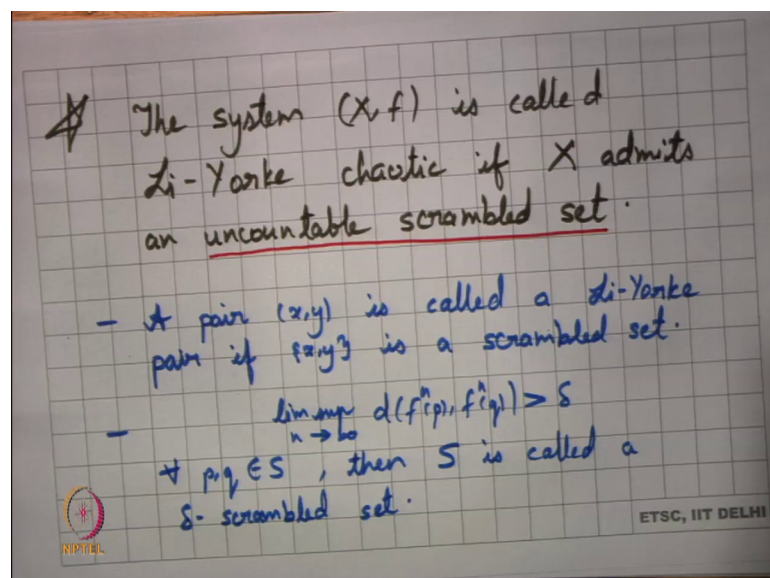 The system (X,f) is called
Li-Yorke chaotic if X admits
an uncountable scrambled set.
- A pair (x,y) is called a Li-Yorke
pair if {x,y} is a scrambled set.
- lim sup d(fⁿ(p), fⁿ(q)) > δ
n → ∞
∀ p,q ∈ S , then S is called a
δ- scrambled set.
ETSC, IIT DELHI
NPTEL